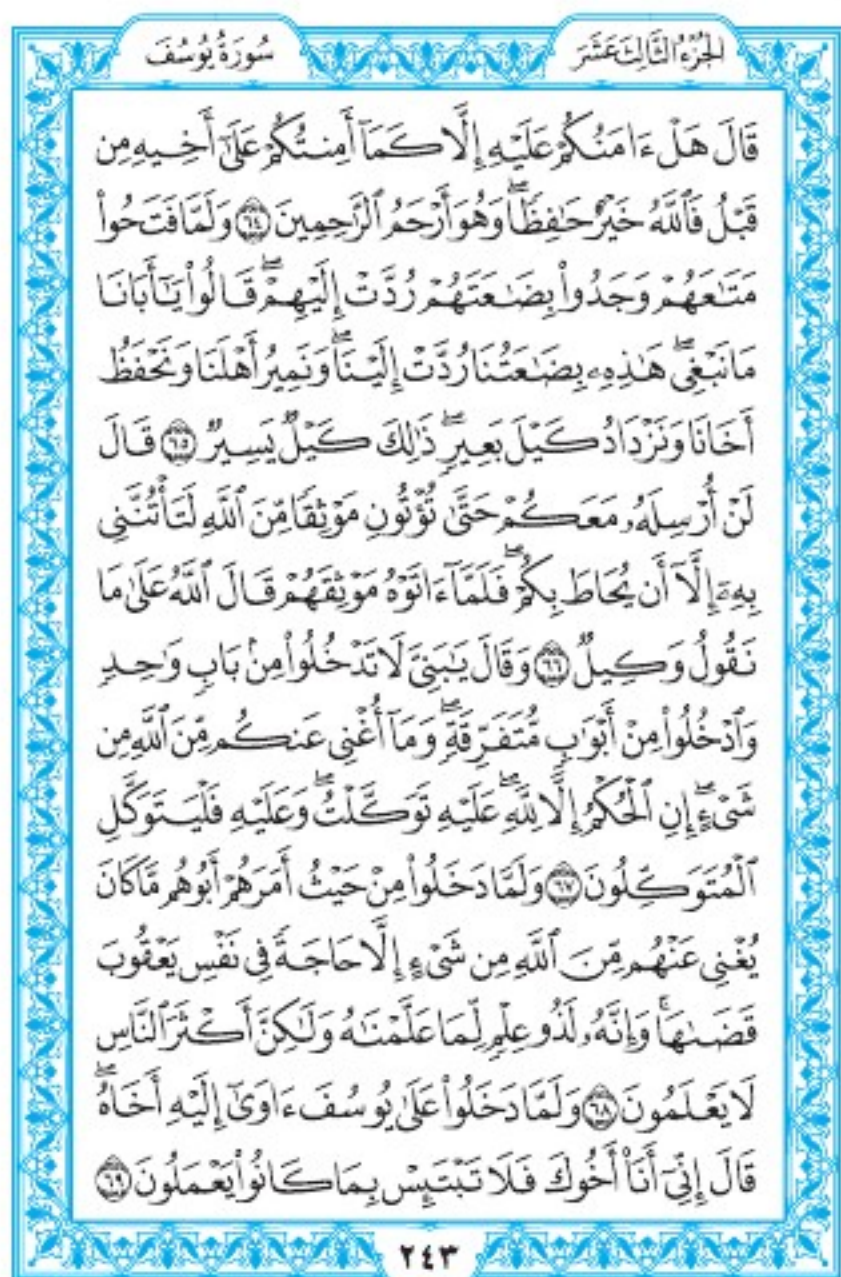 الجزء الثالث عشر
سُورَةُ يُوسُفَ
قَالَ هَلْ ءَامَنُكُمْ عَلَيْهِ إِلَّا كَمَآ أَمِنتُكُمْ عَلَىٰٓ أَخِيهِ مِن
قَبْلُ فَٱللَّهُ خَيْرٌ حَٰفِظًاۖ وَهُوَ أَرْحَمُ ٱلرَّٰحِمِينَ ۝٦٤ وَلَمَّا فَتَحُوا۟
مَتَٰعَهُمْ وَجَدُوا۟ بِضَٰعَتَهُمْ رُدَّتْ إِلَيْهِمْۖ قَالُوا۟ يَٰٓأَبَانَا
مَا نَبْغِىۖ هَٰذِهِۦ بِضَٰعَتُنَا رُدَّتْ إِلَيْنَاۖ وَنَمِيرُ أَهْلَنَا وَنَحْفَظُ
أَخَانَا وَنَزْدَادُ كَيْلَ بَعِيرٍۖ ذَٰلِكَ كَيْلٌ يَسِيرٌ ۝٦٥ قَالَ
لَنْ أُرْسِلَهُۥ مَعَكُمْ حَتَّىٰ تُؤْتُونِ مَوْثِقًا مِّنَ ٱللَّهِ لَتَأْتُنَّنِى
بِهِۦٓ إِلَّآ أَن يُحَاطَ بِكُمْۖ فَلَمَّآ ءَاتَوْهُ مَوْثِقَهُمْ قَالَ ٱللَّهُ عَلَىٰ مَا
نَقُولُ وَكِيلٌ ۝٦٦ وَقَالَ يَٰبَنِىَّ لَا تَدْخُلُوا۟ مِنۢ بَابٍ وَٰحِدٍ
وَٱدْخُلُوا۟ مِنْ أَبْوَٰبٍ مُّتَفَرِّقَةٍۖ وَمَآ أُغْنِى عَنكُم مِّنَ ٱللَّهِ مِن
شَىْءٍۖ إِنِ ٱلْحُكْمُ إِلَّا لِلَّهِۖ عَلَيْهِ تَوَكَّلْتُۖ وَعَلَيْهِ فَلْيَتَوَكَّلِ
ٱلْمُتَوَكِّلُونَ ۝٦٧ وَلَمَّا دَخَلُوا۟ مِنْ حَيْثُ أَمَرَهُمْ أَبُوهُم مَّا كَانَ
يُغْنِى عَنْهُم مِّنَ ٱللَّهِ مِن شَىْءٍ إِلَّا حَاجَةً فِى نَفْسِ يَعْقُوبَ
قَضَىٰهَاۚ وَإِنَّهُۥ لَذُو عِلْمٍ لِّمَا عَلَّمْنَٰهُ وَلَٰكِنَّ أَكْثَرَ ٱلنَّاسِ
لَا يَعْلَمُونَ ۝٦٨ وَلَمَّا دَخَلُوا۟ عَلَىٰ يُوسُفَ ءَاوَىٰٓ إِلَيْهِ أَخَاهُۖ
قَالَ إِنِّىٓ أَنَا۠ أَخُوكَ فَلَا تَبْتَئِسْ بِمَا كَانُوا۟ يَعْمَلُونَ ۝٦٩
٢٤٣